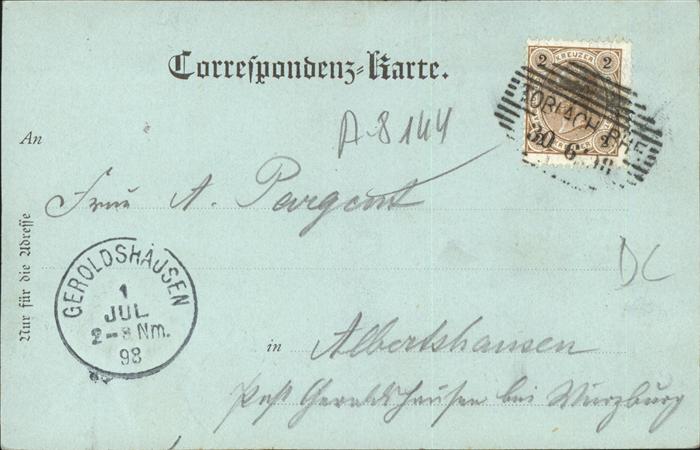 Correspondenz-Karte.
2 KREUZER 2
TOBLACH-BHF
30 6 98
A-8144
An
Frau A. Pargent
Nur für die Adresse
GEROLDSHAUSEN
1
JUL
2-3 Nm.
98
DC
in Albertshausen
Post Geroldshausen bei Würzburg